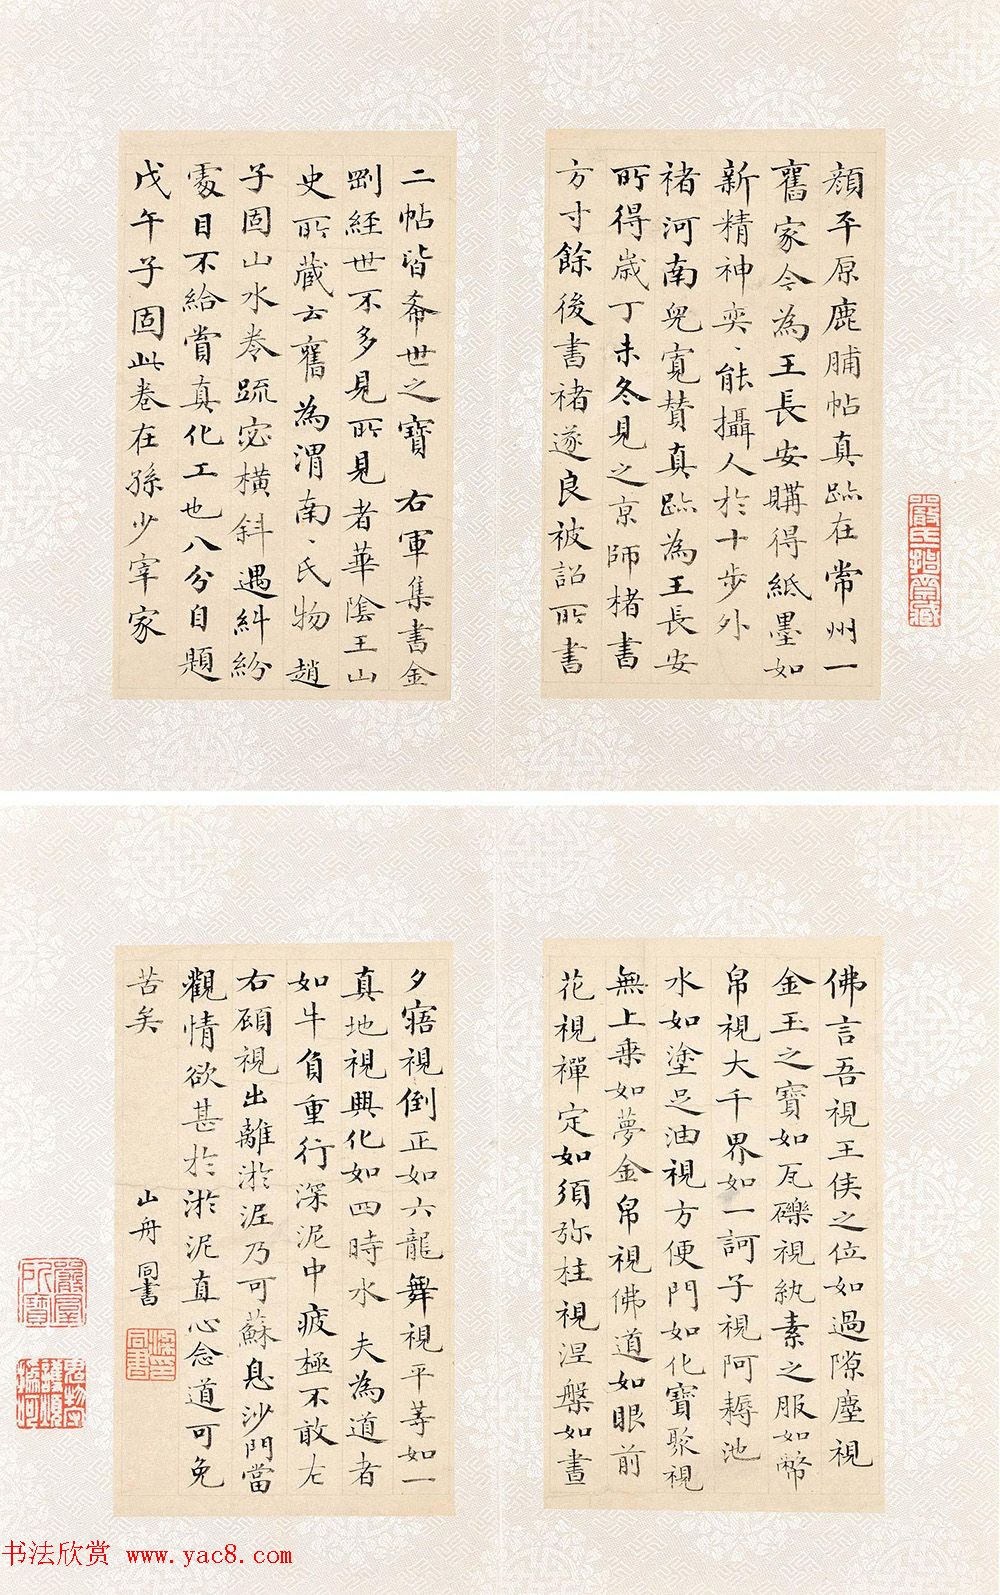 顔平原鹿脯帖真跡在常州一
舊家今為王長安購得紙墨如
新精神奕、能攝人於十步外
褚河南兒寛賛真跡為王長安
所得嵗丁未冬見之京師楮書
方寸餘後書褚遂良被詔所書
二帖皆希世之寶 右軍集書金
剛經世不多見所見者華陰王山
史所藏云舊為渭南、氏物 趙
子固山水卷疏宓横斜遇糾紛
處目不給賞真化工也八分自題
戊午子固此卷在孫少宰家
佛言吾視王侯之位如過隙塵視
金玉之寶如瓦礫視紈素之服如幣
帛視大千界如一訶子視阿耨池
水如塗足油視方便門如化寶聚視
無上乗如夢金帛視佛道如眼前
花視禪定如須弥柱視涅槃如晝
夕寤視倒正如六龍舞視平等如一
真地視興化如四時水 夫為道者
如牛負重行深泥中疲極不敢左
右顧視出離淤泥乃可蘇息沙門當
觀情欲甚於淤泥直心念道可免
苦矣 山舟 同書
书法欣赏 www.yac8.com